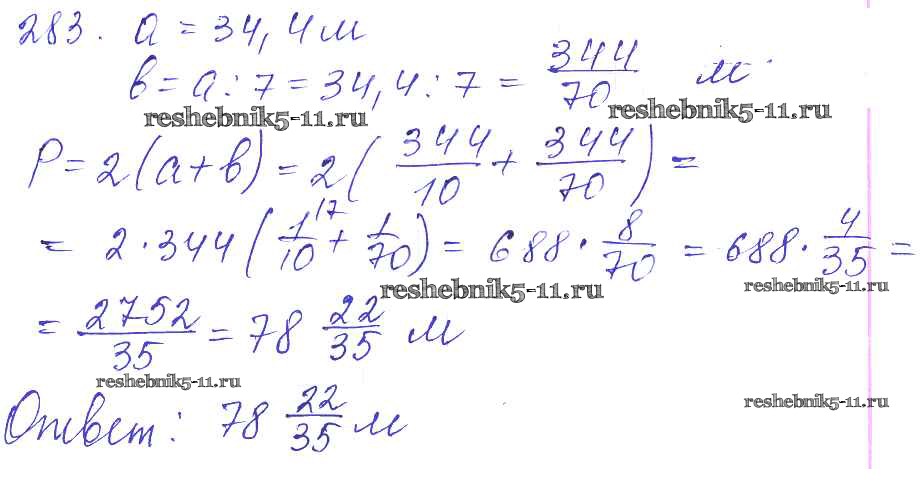 283. a = 34,4 м
в = a : 7 = 34,4 : 7 = 344/70 м.
reshebnik5-11.ru reshebnik5-11.ru
P = 2(a + в) = 2(344/10 + 344/70) =
= 2 · 344(1/10 \7 + 1/70) = 688 · 8/70 = 688 · 4/35 =
reshebnik5-11.ru reshebnik5-11.ru
= 2752/35 = 78 22/35 м
reshebnik5-11.ru reshebnik5-11.ru
Ответ: 78 22/35 м